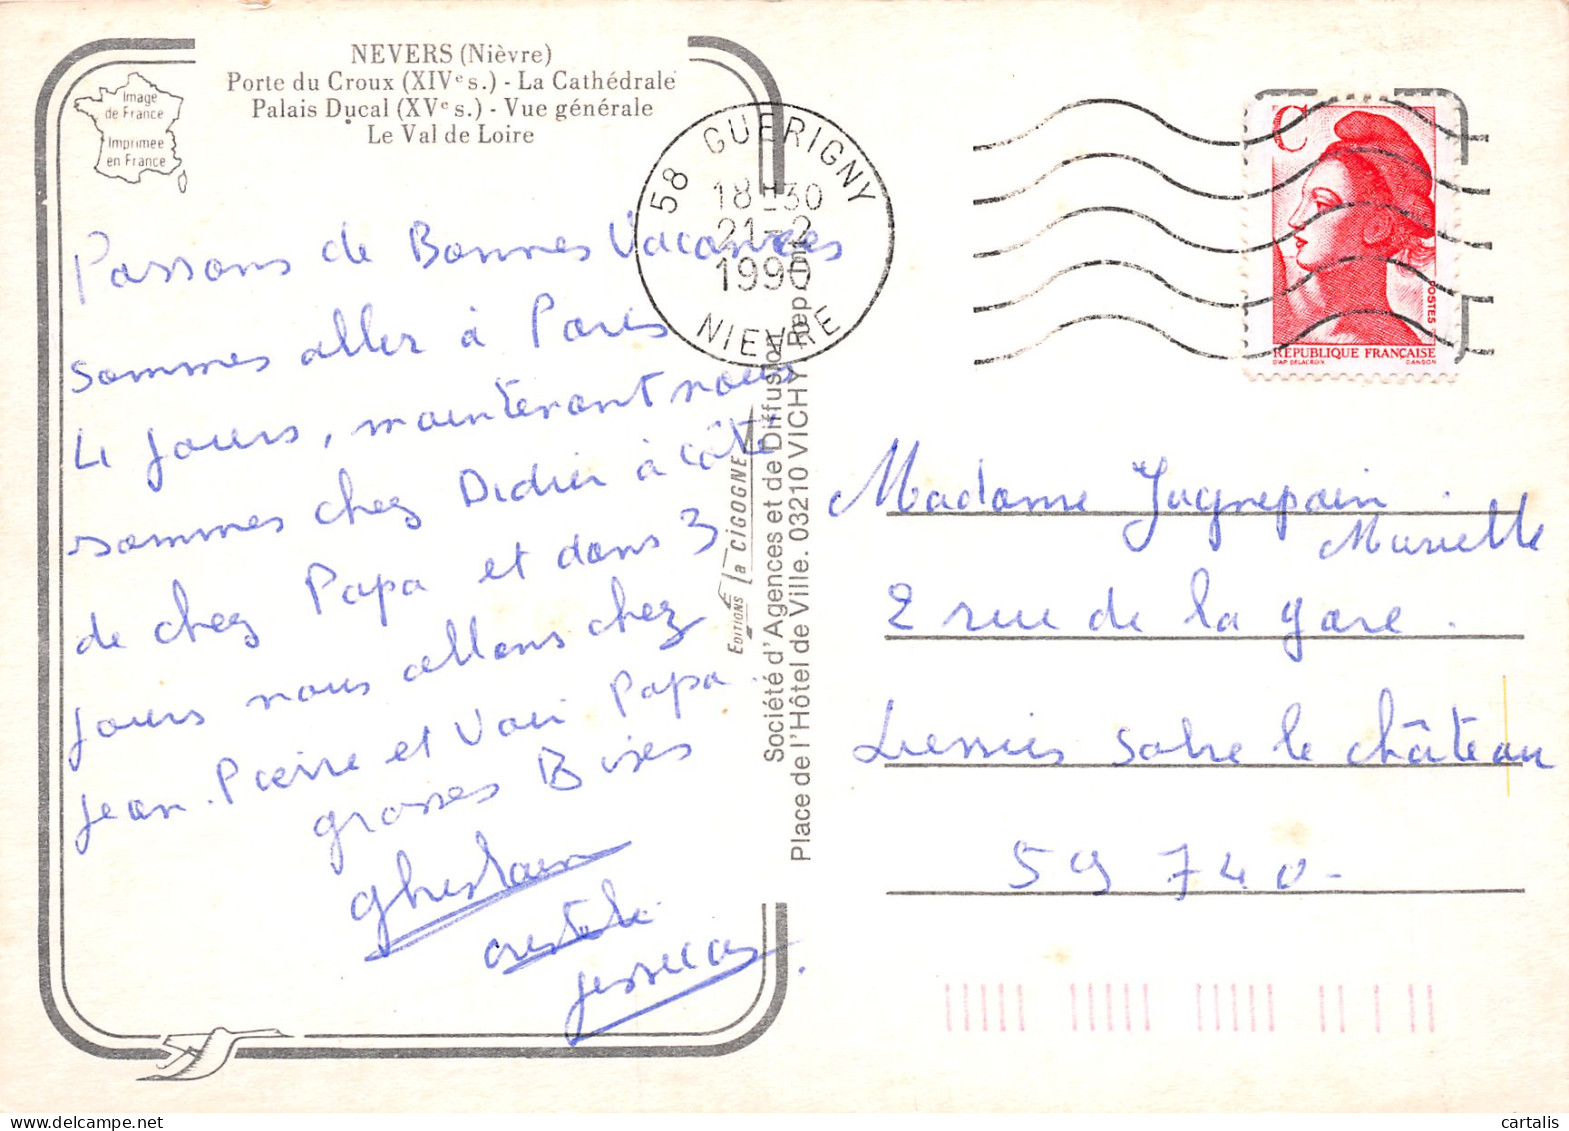 NEVERS (Nièvre)
Porte du Croux (XIVe s.) - La Cathédrale
Palais Ducal (XVe s.) - Vue générale
Le Val de Loire
Image
de France
Imprimée
en France
Passons de Bonnes Vacances
sommes aller à Paris
4 jours, maintenant nous
sommes chez Didier à côté
de chez Papa et dans 3
jours nous allons chez
Jean-Pierre et Voir Papa.
grosses Bises
Ghislain
58 GUERIGNY
18H30
21-2
1990
NIEVRE
EDITIONS la CIGOGNE
Société d'Agences et de Diffusion
Place de l'Hôtel de Ville. 03210 VICHY
C
POSTES
RÉPUBLIQUE FRANÇAISE
D'AP DELACROIX GANDON
Madame
Murielle
2 rue de la gare.
solre le château
59740-
cartalis
delcampe.net